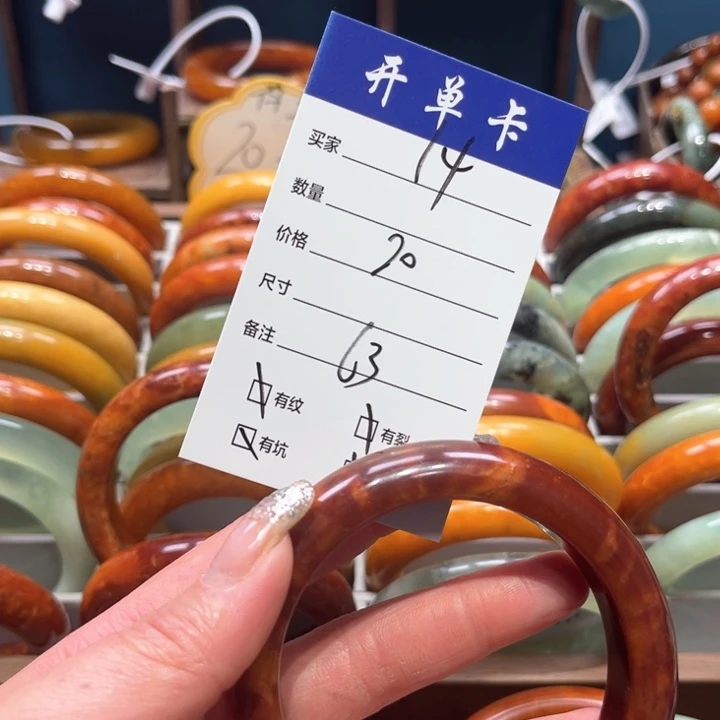 开单卡
买家 14
数量
价格 20
尺寸
备注 63
有纹 有裂
有坑
20